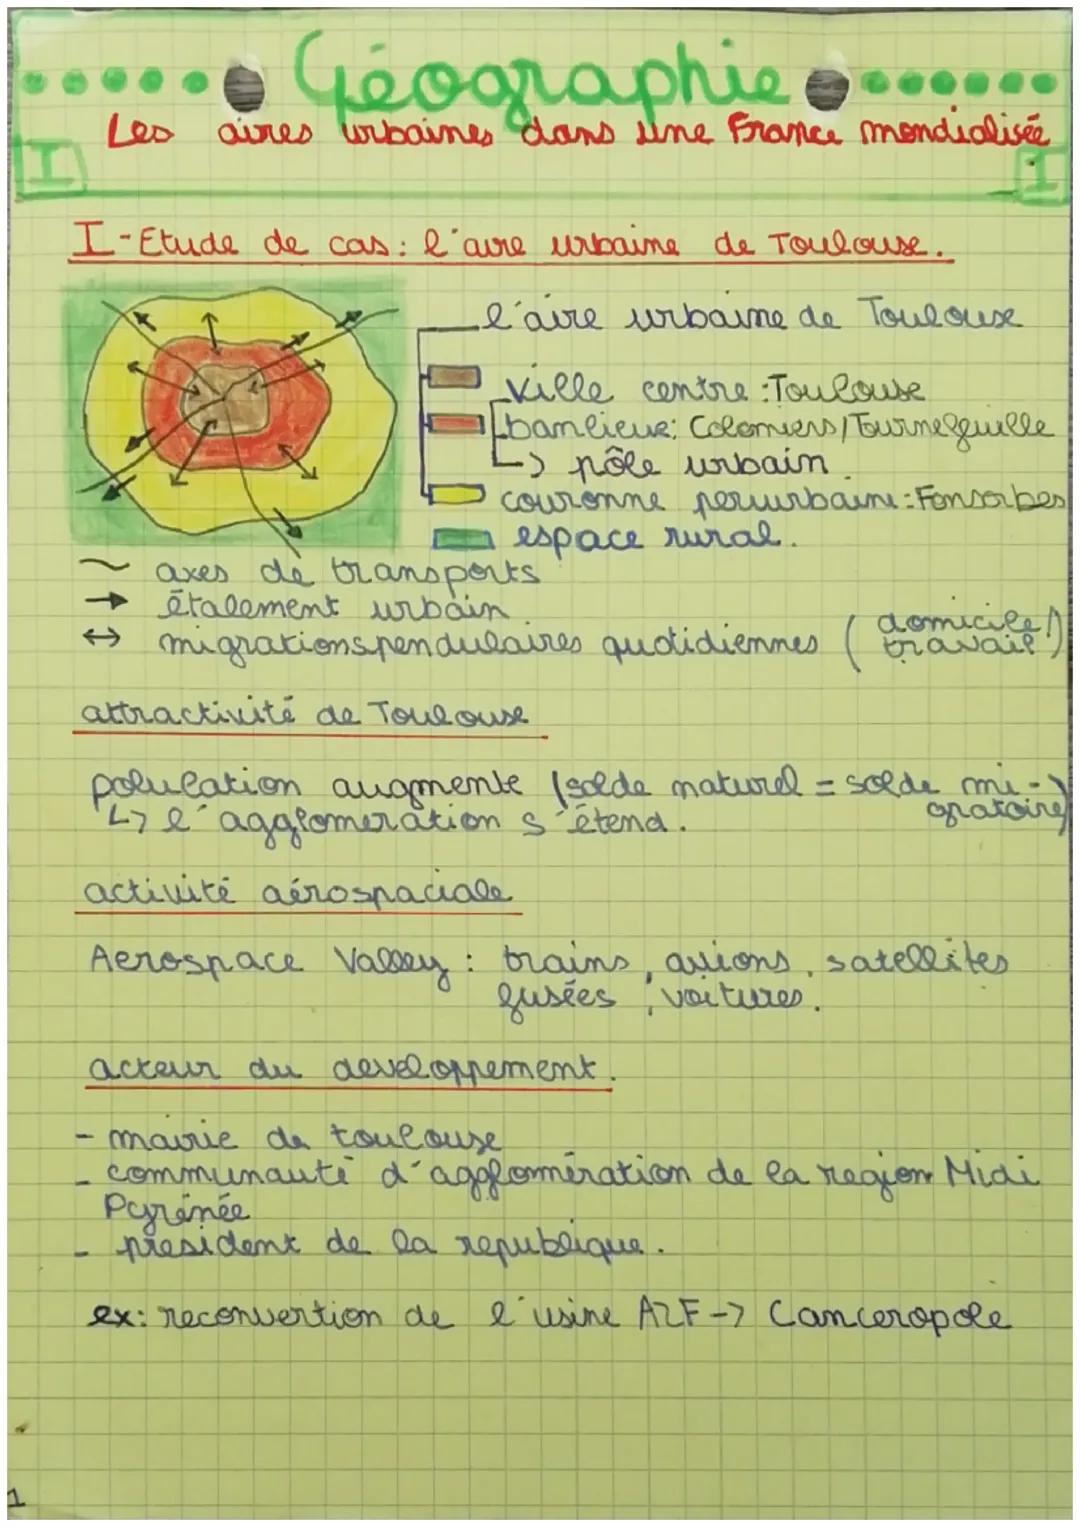 Géographie
Les aires urbaines dans une France mondialisée
I
1
I-Etude de cas: l'aire urbaine de Toulouse.
l'aire urbaine de Toulouse
ville centre: Toulouse
banlieue: Colomiers/Tournefeuille
↳ pôle urbain
couronne periurbaine: Fonsorbes
espace rural.
~ axes de transports
→ étalement urbain
↔ migrations pendulaires quotidiennes (domicile/
travail)
attractivité de Toulouse
polulation augmente (solde naturel = solde mi-
gratoire)
↳ l'agglomeration s'étend.
activité aérospaciale
Aerospace Valley: trains, avions, satellites
fusées, voitures.
acteur du developpement.
- mairie de toulouse
- communauté d'agglomération de la region Midi
Pyrénée
- president de la republique.
ex: reconvertion de l'usine AZF → Canceropole
1